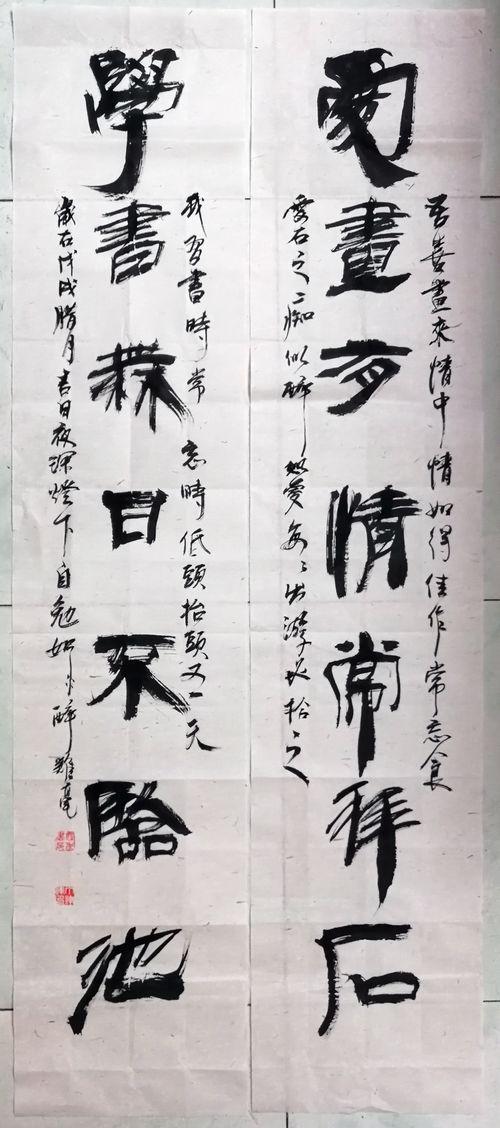 吾喜畫來情中情如得佳作常忘食
愛畫有情常拜石
愛石之痴似醉如愛每々出游必拾之
我習書時常忘時低頭抬頭又一天
學書無日不臨池
歲在戊戌腊月吉日夜深燈下自勉如